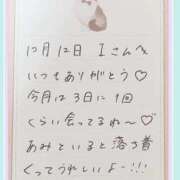 12月12日 Iさんへ
いつもありがとう♡
今月は3日に1回
くらい会ってるね〜♡
あみといると落ち着
くってうれしいよー!!!